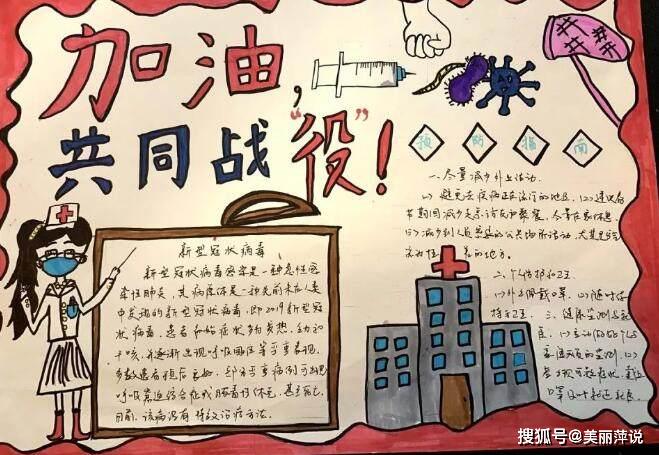 加油，
共同战“役”！
预防指南
新型冠状病毒
新型冠状病毒感染是一种急性感
染性肺炎，其病原体是一种先前未在人类
中发现的新型冠状病毒，即2019新型冠
状病毒，患者初始症状多为发热、乏力和
干咳，并逐渐出现呼吸困难等严重表现，
多数患者预后良好，部分严重病例可出现
呼吸窘迫综合征或脓毒休克，甚至死亡
目前，该病没有特效治疗方法。
一、尽量减少外出活动。
(1)避免去疾病正在流行的地区。(2)建议春
节期间减少走亲访友和聚餐，尽量在家休息
(3)减少到人员密集的公共场所活动，尤其是
的地方。
二、个人防护和卫
(1)外出佩戴口罩。(2)随时保
持手卫生。三、健康监测与就
医。(1)主动做好个人
搜狐号@美丽萍说